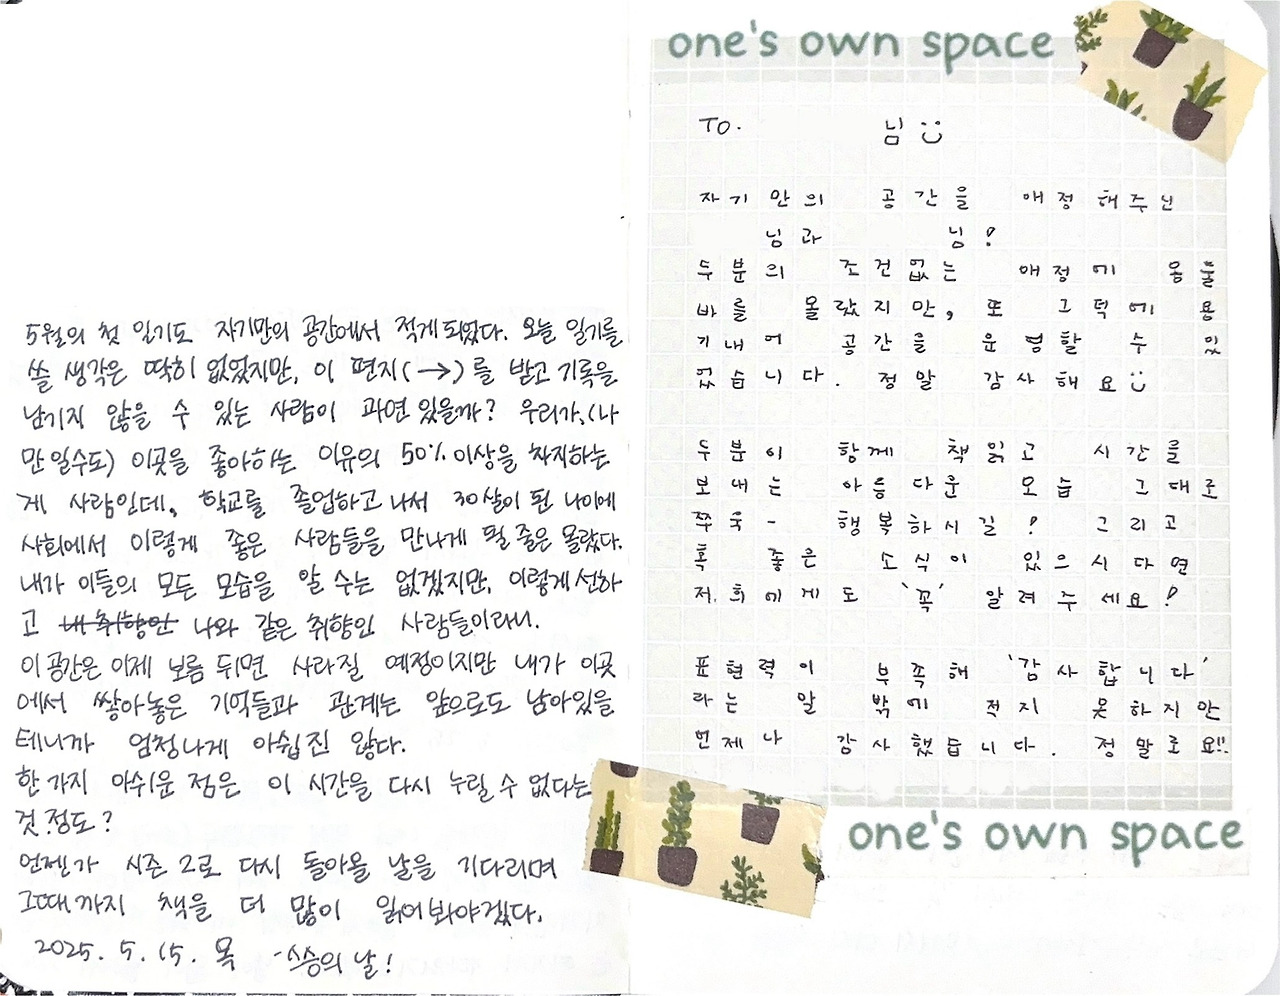 5월의 첫 일기도 자기만의 공간에서 적게 되었다. 오늘 일기를
쓸 생각은 딱히 없었지만, 이 편지(→)를 받고 기록을
남기지 않을 수 있는 사람이 과연 있을까? 우리가,(나
만일수도) 이곳을 좋아하는 이유의 50% 이상을 차지하는
게 사람인데, 학교를 졸업하고 나서 30살이 된 나이에
사회에서 이렇게 좋은 사람들을 만나게 될 줄은 몰랐다.
내가 이들의 모든 모습을 알 수는 없겠지만, 이렇게 선하
고 내 취향인 나와 같은 취향인 사람들이라니.
이 공간은 이제 보름 뒤면 사라질 예정이지만 내가 이곳
에서 쌓아놓은 기억들과 관계는 앞으로도 남아있을
테니까 엄청나게 아쉽진 않다.
한 가지 아쉬운 점은 이 시간을 다시 누릴 수 없다는
것 정도?
언젠가 시즌 2로 다시 돌아올 날을 기다리며
그때까지 책을 더 많이 읽어봐야겠다.
2025. 5. 15. 목 -스승의 날!
one's own space
TO. 님 :)
자기만의 공간을 애정해주신
님과 님!
두분의 조건없는 애정에 몸둘
바를 몰랐지만, 또 그덕에 용
기내어 공간을 운영할 수 있
었습니다. 정말 감사해요 :)
두분이 함께 책읽고 시간을
보내는 아름다운 모습 그대로
쭈욱- 행복하시길! 그리고
혹 좋은 소식이 있으시다면
저희에게도 '꼭' 알려주세요!
표현력이 부족해 '감사합니다'
라는 말 밖에 적지 못하지만
언제나 감사했습니다. 정말로요!!
one's own space